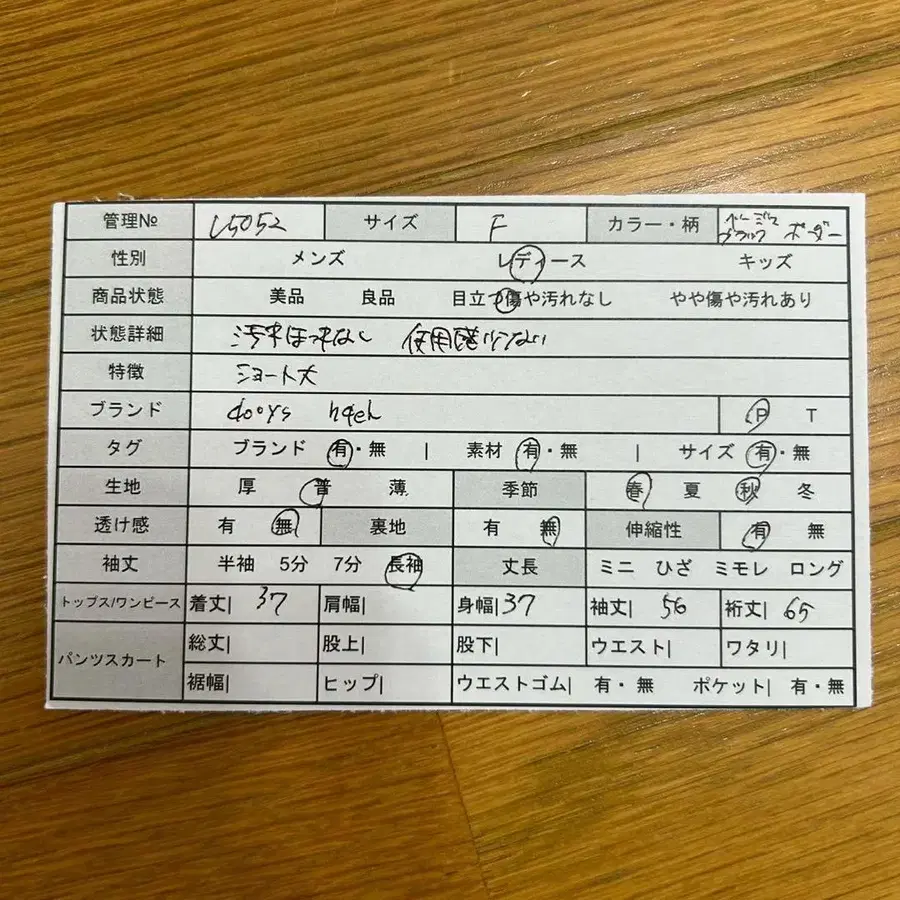 管理№ U5052 サイズ F カラー・柄 ベージュ ブラック ボーダー
性別 メンズ レディース キッズ
商品状態 美品 良品 目立つ傷や汚れなし やや傷や汚れあり
状態詳細 汚れほつれなし 使用感少ない
特徴 ショート丈
ブランド dooys P T
タグ ブランド 有・無 | 素材 有・無 | サイズ 有・無
生地 厚 普 薄 季節 春 夏 秋 冬
透け感 有 無 裏地 有 無 伸縮性 有 無
袖丈 半袖 5分 7分 長袖 丈長 ミニ ひざ ミモレ ロング
トップス/ワンピース 着丈| 37 肩幅| 身幅| 37 袖丈| 56 裄丈| 65
パンツスカート 総丈| 股上| 股下| ウエスト| ワタリ|
裾幅| ヒップ| ウエストゴム| 有・無 ポケット| 有・無